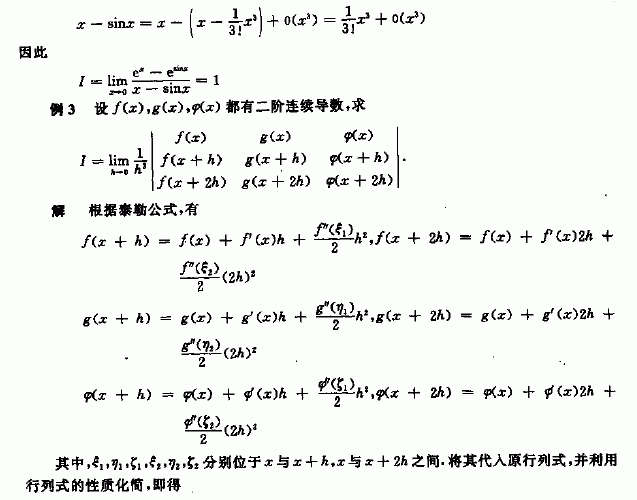 x − sinx = x − (x − 1/3! x³) + 0(x³) = 1/3! x³ + 0(x³)
因此
I = lim x→0 (eˣ − e^sinx)/(x − sinx) = 1
例 3 设 f(x),g(x),φ(x) 都有二阶连续导数,求
I = lim h→0 1/h³ | f(x) g(x) φ(x) |
| f(x + h) g(x + h) φ(x + h) |
| f(x + 2h) g(x + 2h) φ(x + 2h) | .
解 根据泰勒公式,有
f(x + h) = f(x) + f′(x)h + f″(ξ₁)/2 h²,f(x + 2h) = f(x) + f′(x)2h +
f″(ξ₂)/2 (2h)²
g(x + h) = g(x) + g′(x)h + g″(η₁)/2 h²,g(x + 2h) = g(x) + g′(x)2h +
g″(η₂)/2 (2h)²
φ(x + h) = φ(x) + φ′(x)h + φ″(ζ₁)/2 h²,φ(x + 2h) = φ(x) + φ′(x)2h +
φ″(ζ₂)/2 (2h)²
其中,ξ₁,η₁,ζ₁,ξ₂,η₂,ζ₂ 分别位于 x 与 x + h,x 与 x + 2h 之间.将其代入原行列式,并利用
行列式的性质化简,即得